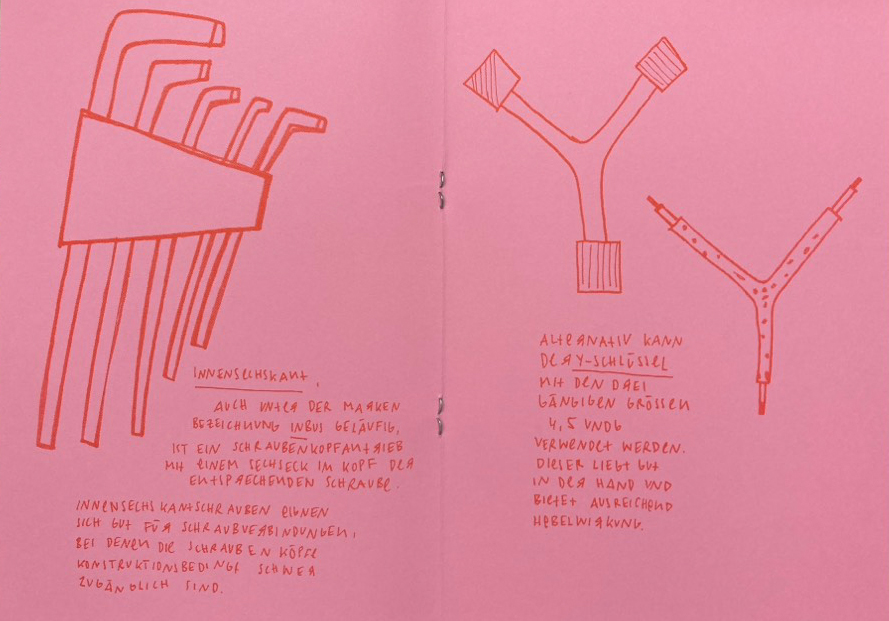 INNENSECHSKANT,
AUCH UNTER DER MARKEN
BEZEICHNUNG INBUS GELÄUFIG,
IST EIN SCHRAUBENKOPFANTRIEB
MIT EINEM SECHSECK IM KOPF DER
ENTSPRECHENDEN SCHRAUBE.
INNENSECHSKANTSCHRAUBEN EIGNEN
SICH GUT FÜR SCHRAUBVERBINDUNGEN,
BEI DENEN DIE SCHRAUBEN KÖPFE
KONSTRUKTIONSBEDINGT SCHWER
ZUGÄNGLICH SIND.
ALTERNATIV KANN
DER Y-SCHLÜSSEL
MIT DEN DREI
GÄNGIGEN GRÖSSEN
4, 5 UND 6
VERWENDET WERDEN.
DIESER LIEGT GUT
IN DER HAND UND
BIETET AUSREICHEND
HEBELWIRKUNG.